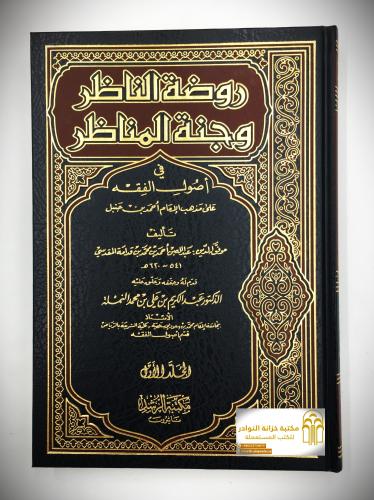 روضة الناظر
وجنة المناظر
في
أصول الفقه
على مذهب الإمام أحمد بن حنبل
تأليف
موفق الدين عبد الله بن أحمد بن محمد بن قدامة المقدسي
٥٤١ - ٦٢٠ هـ
قدم له وحققه وعلق عليه
الدكتور عبد الكريم بن علي بن محمد النملة
الأستاذ
بجامعة الإمام محمد بن سعود الإسلامية - كلية الشريعة بالرياض
قسم أصول الفقه
المجلد الأول
مكتبة الرشد
ناشرون
مكتبة خزانة النوادر
للكتب المستعملة